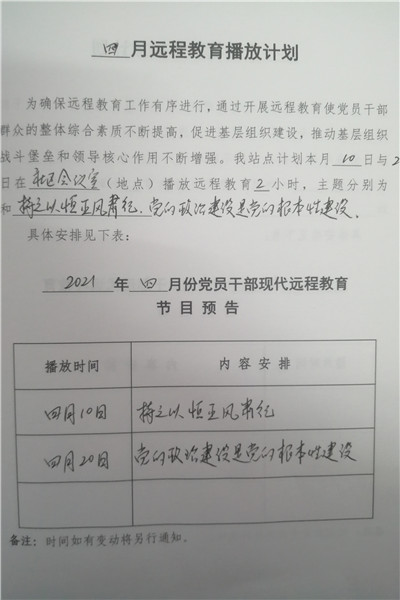 四月远程教育播放计划
为确保远程教育工作有序进行，通过开展远程教育使党员干部
群众的整体综合素质不断提高，促进基层组织建设，推动基层组织
战斗堡垒和领导核心作用不断增强。我站点计划本月 10 日与 2
日在 社区会议室（地点）播放远程教育 2 小时，主题分别为
和 持之以恒正风肃纪、党的政治建设是党的根本性建设、
具体安排见下表：
2021 年 四 月份党员干部现代远程教育
节目预告
播放时间 内容安排
四月10日 持之以恒正风肃纪
四月20日 党的政治建设是党的根本性建设
备注：时间如有变动将另行通知。